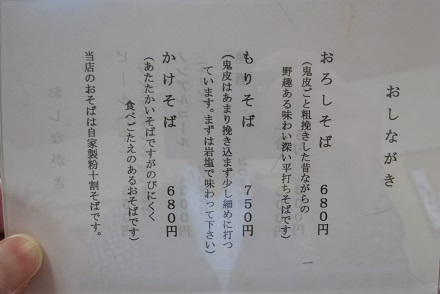 おしながき
おろしそば　６８０円
（鬼皮ごと粗挽きした昔ながらの
野趣ある味わい深い平打ちそばです）
もりそば　７５０円
（鬼皮はあまり挽き込まず少し細めに打っ
ています。まずは岩塩で味わって下さい）
かけそば　６８０円
（あたたかいそばですがのびにくく
食べごたえのあるおそばです）
当店のおそばは自家製粉十割そばです。